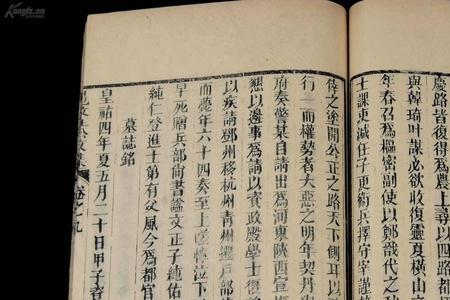 慶路皆復得為農上尋以四路都
與韓琦叶謀必欲收復靈夏橫山
年春召為樞密副使以鄭戩代之
士課吏減任子更衛兵擇守宰謹
倖之塗開公正之路天下側耳以
行一而權勢者大惡之明年契丹
府奏警某自請出為河東陝西宣
懇以邊事為請以資政殿學士復
以疾請鄧州移杭州青州遷戶部
而薨年六十四奏至上嗟悼
早死贈兵部尚書諡文正子純佑
純仁登進士第有父風今為都官
墓誌銘
皇祐四年夏五月二十日甲子資
卷之九
Kongfz.cn